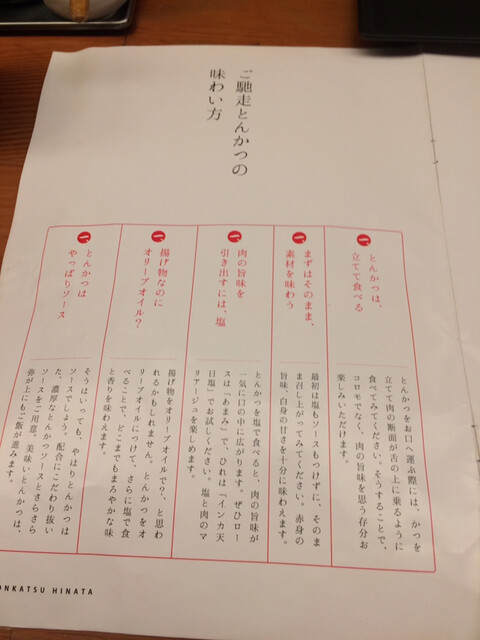 ご馳走とんかつの
味わい方
一、
とんかつは、
立てて食べる
とんかつをお口へ運ぶ際には、かつを
立てて肉の断面が舌の上に乗るように
食べてみてください。そうすることで、
コロモでなく、肉の旨味を思う存分お
楽しみいただけます。
一、
まずはそのまま、
素材を味わう
最初は塩もソースもつけずに、そのま
ま召し上がってみてください。赤身の
旨味、白身の甘さを十分に味わえます。
一、
肉の旨味を
引き出すには、塩
とんかつを塩で食べると、肉の旨味が
一気に口の中に広がります。ぜひロー
スは「あまみ」で、ひれは「インカ天
日塩」でお試しください。塩と肉のマ
リアージュを楽しめます。
一、
揚げ物なのに
オリーブオイル?
揚げ物をオリーブオイルで?、と思わ
れるかもしれません。とんかつをオ
リーブオイルにつけて、さらに塩で食
べることで、どこまでもまろやかな味
と香りを味わえます。
一、
とんかつは
やっぱりソース
そうはいっても、やはりとんかつは
ソースでしょう。配合にこだわり抜い
た、濃厚なとんかつソースとさらさら
ソースをご用意。美味いとんかつは、
弥が上にもご飯が進みます。
ONKATSU HINATA